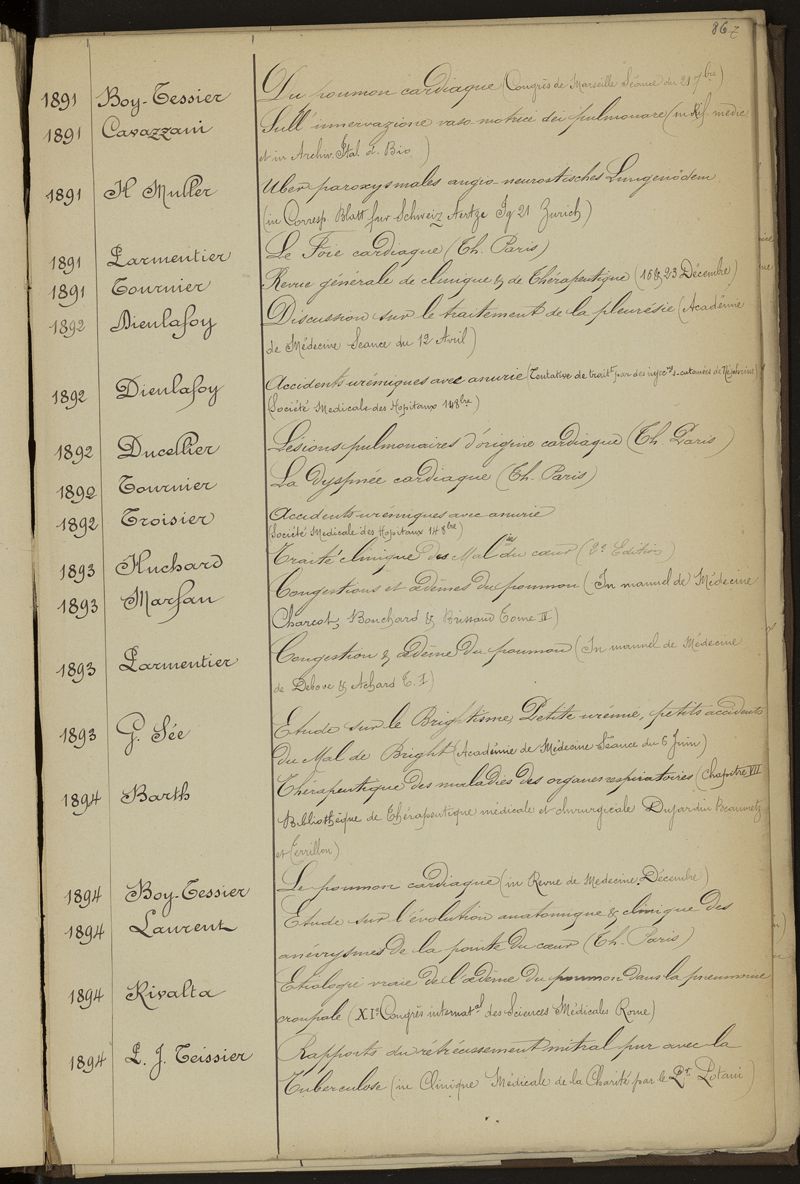 867
1891 Boy-Tessier Du poumon cardiaque (Congrès de Marseille Séance du 21 7bre)
1891 Cavazzani Sull'innervazione vaso-motrice dei pulmonare (in Rif. medic
et in Archiv. Ital. d. Bio)
1891 H Muller Uber paroxysmales angio-neurostisches Lungenödem
(in Corresp. Blatt fur Schweiz Aertze Jg 21 Zurich)
1891 Parmentier Le Foie cardiaque (Th. Paris)
1891 Tournier Revue générale de clinique & de Thérapeutique (16 & 23 Décembre)
1892 Dieulafoy Discussion sur le traitement de la pleurésie (Académie
de Médecine Seance du 12 Avril)
1892 Dieulafoy Accidents urémiques avec anurie (Tentative de trait.t par des injec.ns s-cutanées de Néphrine)
(Société Medicale des Hopitaux 14 8bre)
1892 Ducellier Lésions pulmonaires d'origine cardiaque (Th. Paris)
1892 Tournier La dyspnée cardiaque (Th. Paris)
1892 Troisier Accidents urémiques avec anurie
(Société Medicale des Hopitaux 14 8bre)
1893 Huchard Traité clinique des Malies du cœur (2e Edition)
1893 Marfan Congestions et œdèmes du poumon (In manuel de Médecine
Charcot, Bouchard & Brissaud Tome IV)
1893 Parmentier Congestion & œdème du poumon (In manuel de Médecine
de Debove & Achard T. I)
1893 G. Sée Etude sur le Brightisme, Petite urémie, petits accidents
du Mal de Bright (Académie de Médecine Séance du 6 Juin)
1894 Barth Thérapeutique des maladies des organes respiratoires (Chapitre VII
Bibliothèque de Thérapeutique médicale et chirurgicale Dujardin Beaumetz
et Terrillon)
1894 Boy-Tessier Le poumon cardiaque (in Revue de Médecine, Décembre)
1894 Laurent Etude sur l'évolution anatomique & clinique des
anévrysmes de la pointe du cœur (Th. Paris)
1894 Rivalta Etiologie vraie de l'œdème du poumon dans la pneumonie
croupale (XIe Congrès internat.al des Sciences Médicales Rome)
1894 P. J. Teissier Rapports du rétrécissement mitral pur avec la
Tuberculose (in Clinique Médicale de la Charité par le Pr. Potain)